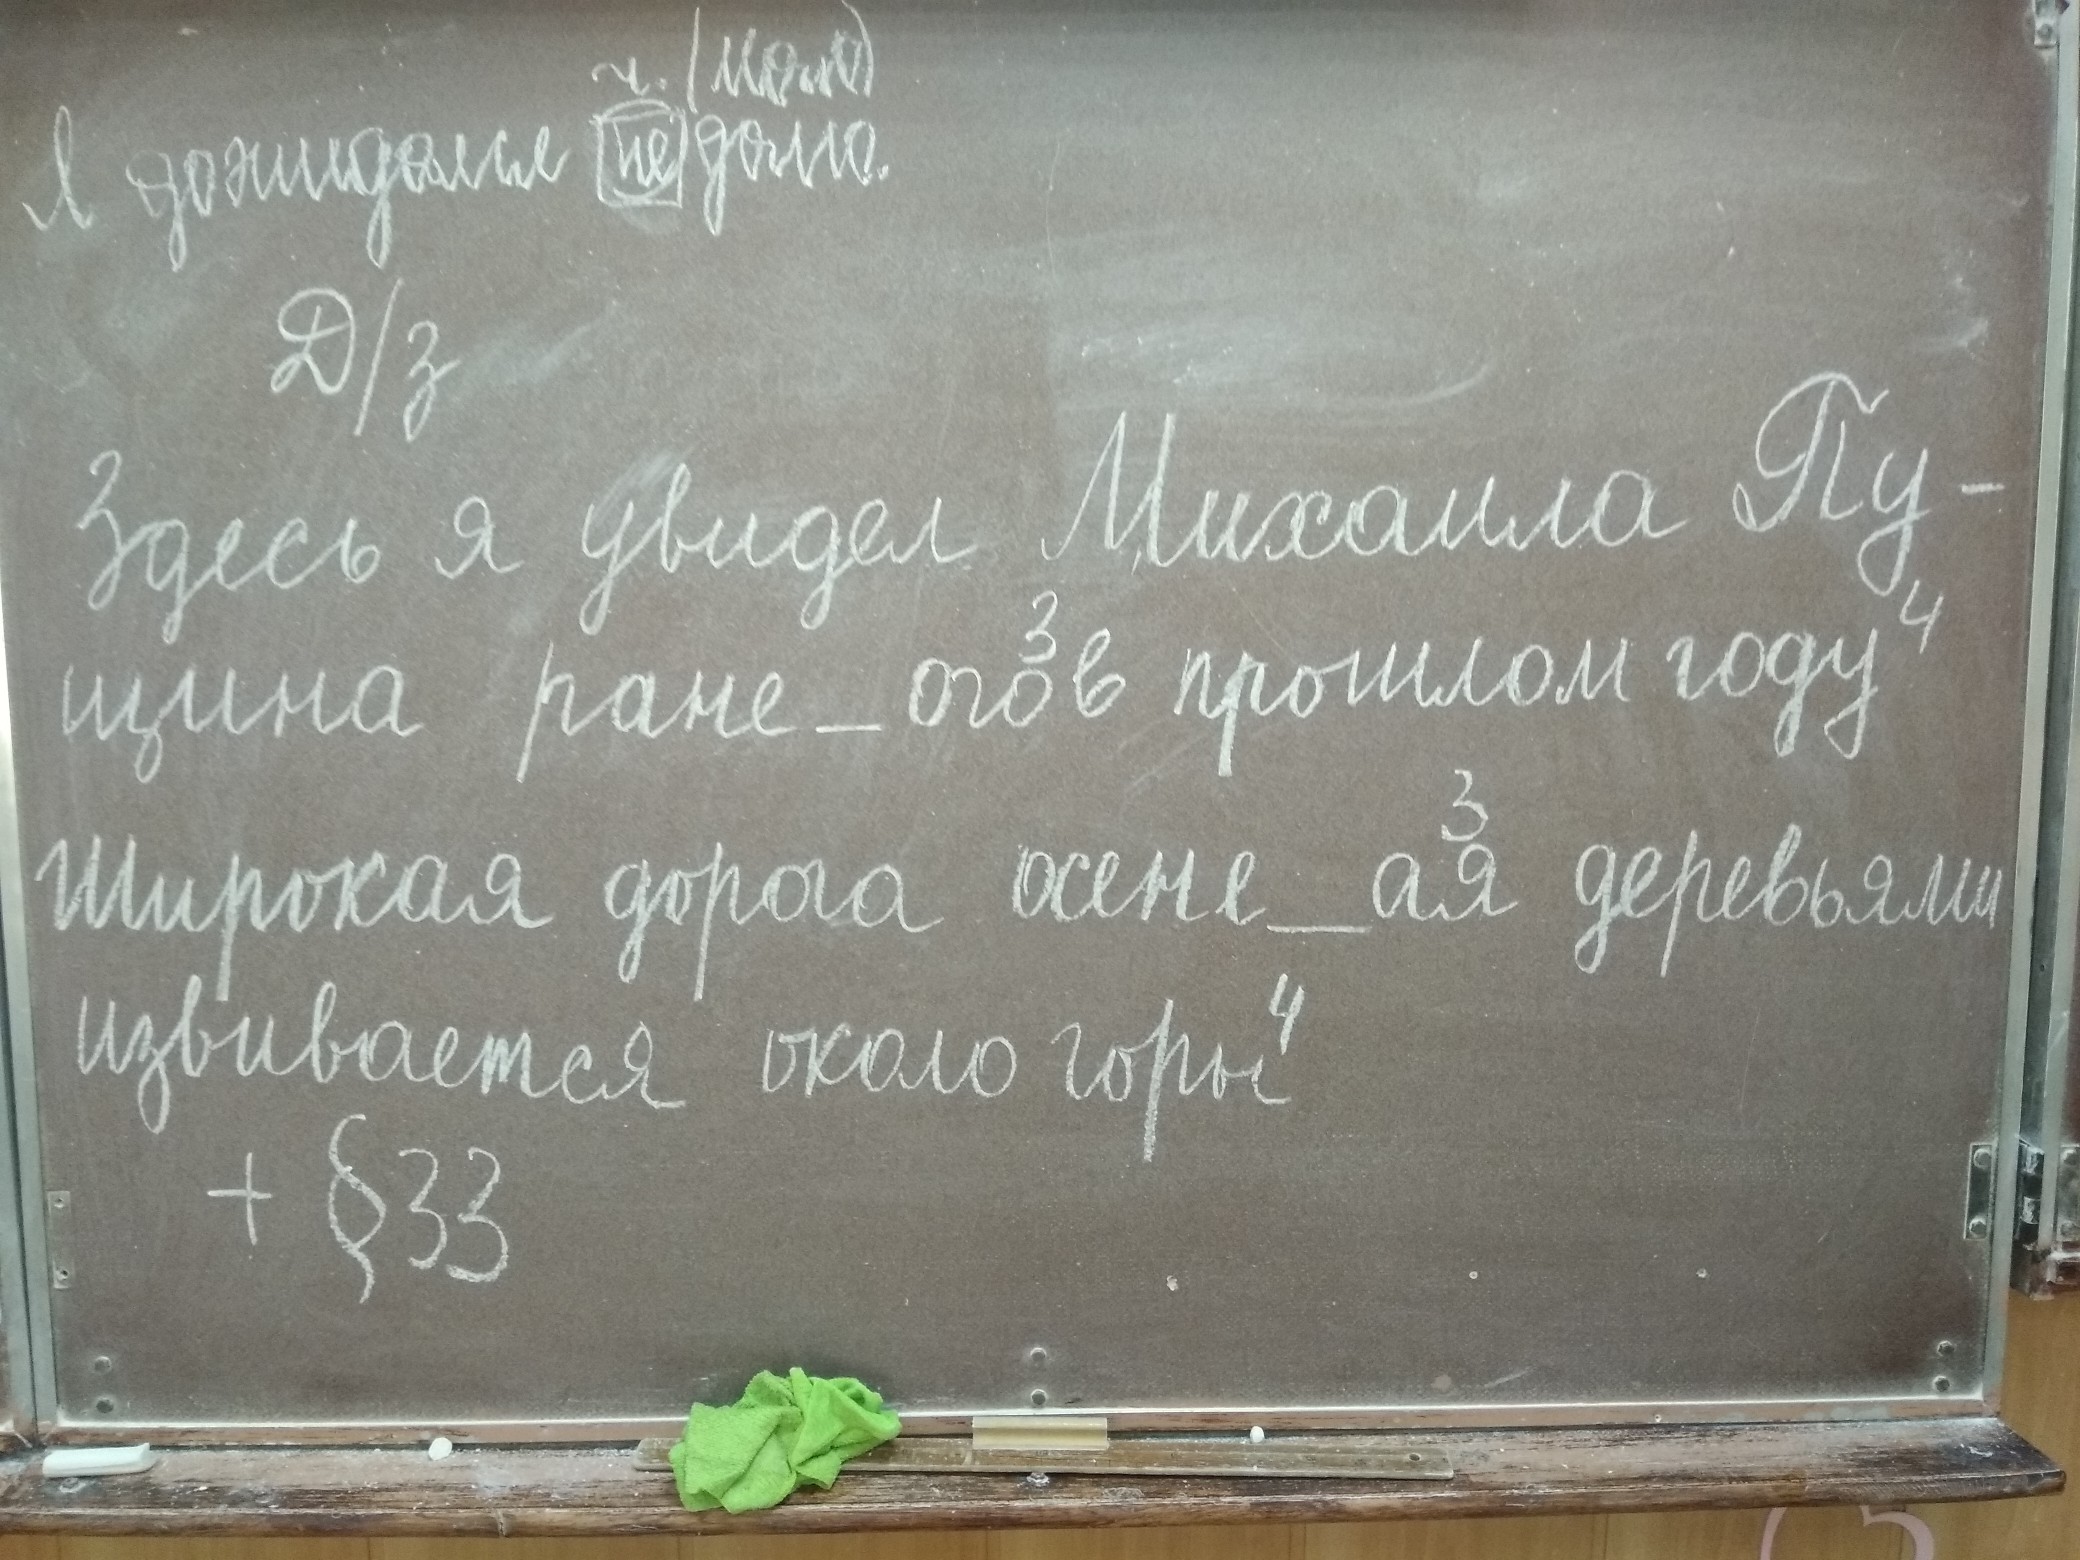 ч. (мало)
Я дожидался недолго.
Д/з
Здесь я увидел Михаила Пу-
щина ране_ого³ в прошлом году⁴
Широкая дорога осене_ая³ деревьями
извивается около горы⁴
+ §33